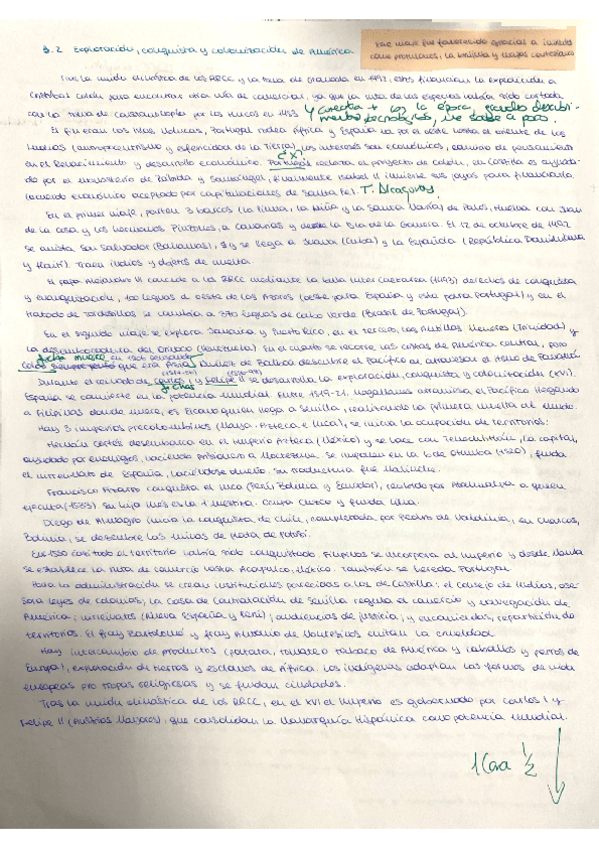 3.2 Exploración, conquista y colonización de América.
Este viaje fue favorecido gracias a inventos
como la brújula y mapas
Tras la unión dinástica de los RRCC y la toma de Granada en 1492, estos financian la expedición a
Cristóbal Colón para encontrar otra vía de comercio, ya que la ruta de las especias había sido cortada
con la toma de Constantinopla por los turcos en 1453 y conecta + con la época, grandes descubri-
mientos tecnológicos, me sabe a poco.
El fin eran las Islas Molucas, Portugal rodea África y España va por el oeste hasta el oriente de las
Indias los intereses son económicos, cambio de pensamiento
en el Renacimiento y desarrollo económico. Portugal rechaza el proyecto de Colón, en Castilla es ayudado
por el monasterio de Rábida y finalmente Isabel II sus joyas para financiarlo.
(acuerdo económico aceptado por capitulaciones de Santa Fe). T. Alcaçovas.
En el primer viaje, parten 3 barcos (la Pinta, la Niña y la Santa María) de Palos, Huelva con Juan
de la Cosa y los hermanos Pinzones, a Canarias y desde la Isla de la Gomera. El 12 de octubre de 1492
se avista San Salvador (Bahamas), y se llega a Juana (Cuba) y la Española (República Dominicana
y Haití). Traen indios y objetos de vuelta.
El papa Alejandro VI concede a los RRCC mediante la bula Inter Caetera (1493) derechos de conquista
y evangelización, 100 leguas al oeste de las Azores (oeste para España y este para Portugal) y en el
tratado de Tordesillas se cambia a 370 leguas de Cabo Verde (Brasil de Portugal).
En el segundo viaje se explora Jamaica y Puerto Rico, en el tercero, las Antillas Menores (Trinidad) y
la desembocadura del Orinoco (Venezuela). En el cuarto se recorre las costas de América central, pero
Colón muere que era Asia. Núñez de Balboa descubre el Pacífico al atravesar el Istmo de Panamá
Durante el reinado de Carlos I y Felipe II se desarrolla la exploración, conquista y colonización (XVI).
fechas
España se convierte en la potencia mundial. Entre 1519-21 Magallanes atraviesa el Pacífico llegando
a Filipinas donde muere, es Elcano quien llega a Sevilla, realizando la primera vuelta al mundo.
Hay 3 imperios precolombinos (Maya, Azteca e Inca), se inicia la ocupación de territorios:
Hernán Cortés desembarca en el Imperio Azteca (México) y se hace con Tenochtitlán, la capital,
ayudado por enemigos, haciendo prisionero a Moctezuma. Se imponen en la b. de Otumba (1520), funda
el virreinato de España, haciéndose dueño. Su traductora fue Malinche.
Francisco Pizarro conquista el Inca (Perú, Bolivia y Ecuador), recibido por Atahualpa a quien
ejecuta (1533). Su hija Inés es la 1ª mestiza. Ocupa Cuzco y funda Lima.
Diego de Almagro inicia la conquista de Chile, completada por Pedro de Valdivia, en Charcas,
Bolivia, se descubre las minas de plata de Potosí.
En 1550 casi todo el territorio había sido conquistado. Filipinas se incorpora al Imperio y desde Manila
se establece la ruta de comercio hasta Acapulco, México. También se hereda Portugal.
Para la administración se crean instituciones parecidas a las de Castilla: el Consejo de Indias, ase-
sora leyes de colonias; la Casa de Contratación de Sevilla regula el comercio y navegación de
América; virreinatos (Nueva España y Perú); audiencias de justicia; y encomiendas, repartición de
territorios. El fray Bartolomé y fray Antonio de Montesinos evitan la crueldad.
Hay intercambio de productos (patata, tomate o tabaco de América y caballos y perros de
Europa), explotación de tierras y esclavos de África. Los indígenas adoptan las formas de vida
europeas pro tropas religiosas y se fundan ciudades.
Tras la unión dinástica de los RRCC, en el XVI el Imperio es gobernado por Carlos I y
Felipe II (Austrias Mayores), que consolidan la Monarquía Hispánica como potencia mundial.
1 Cara 1/2